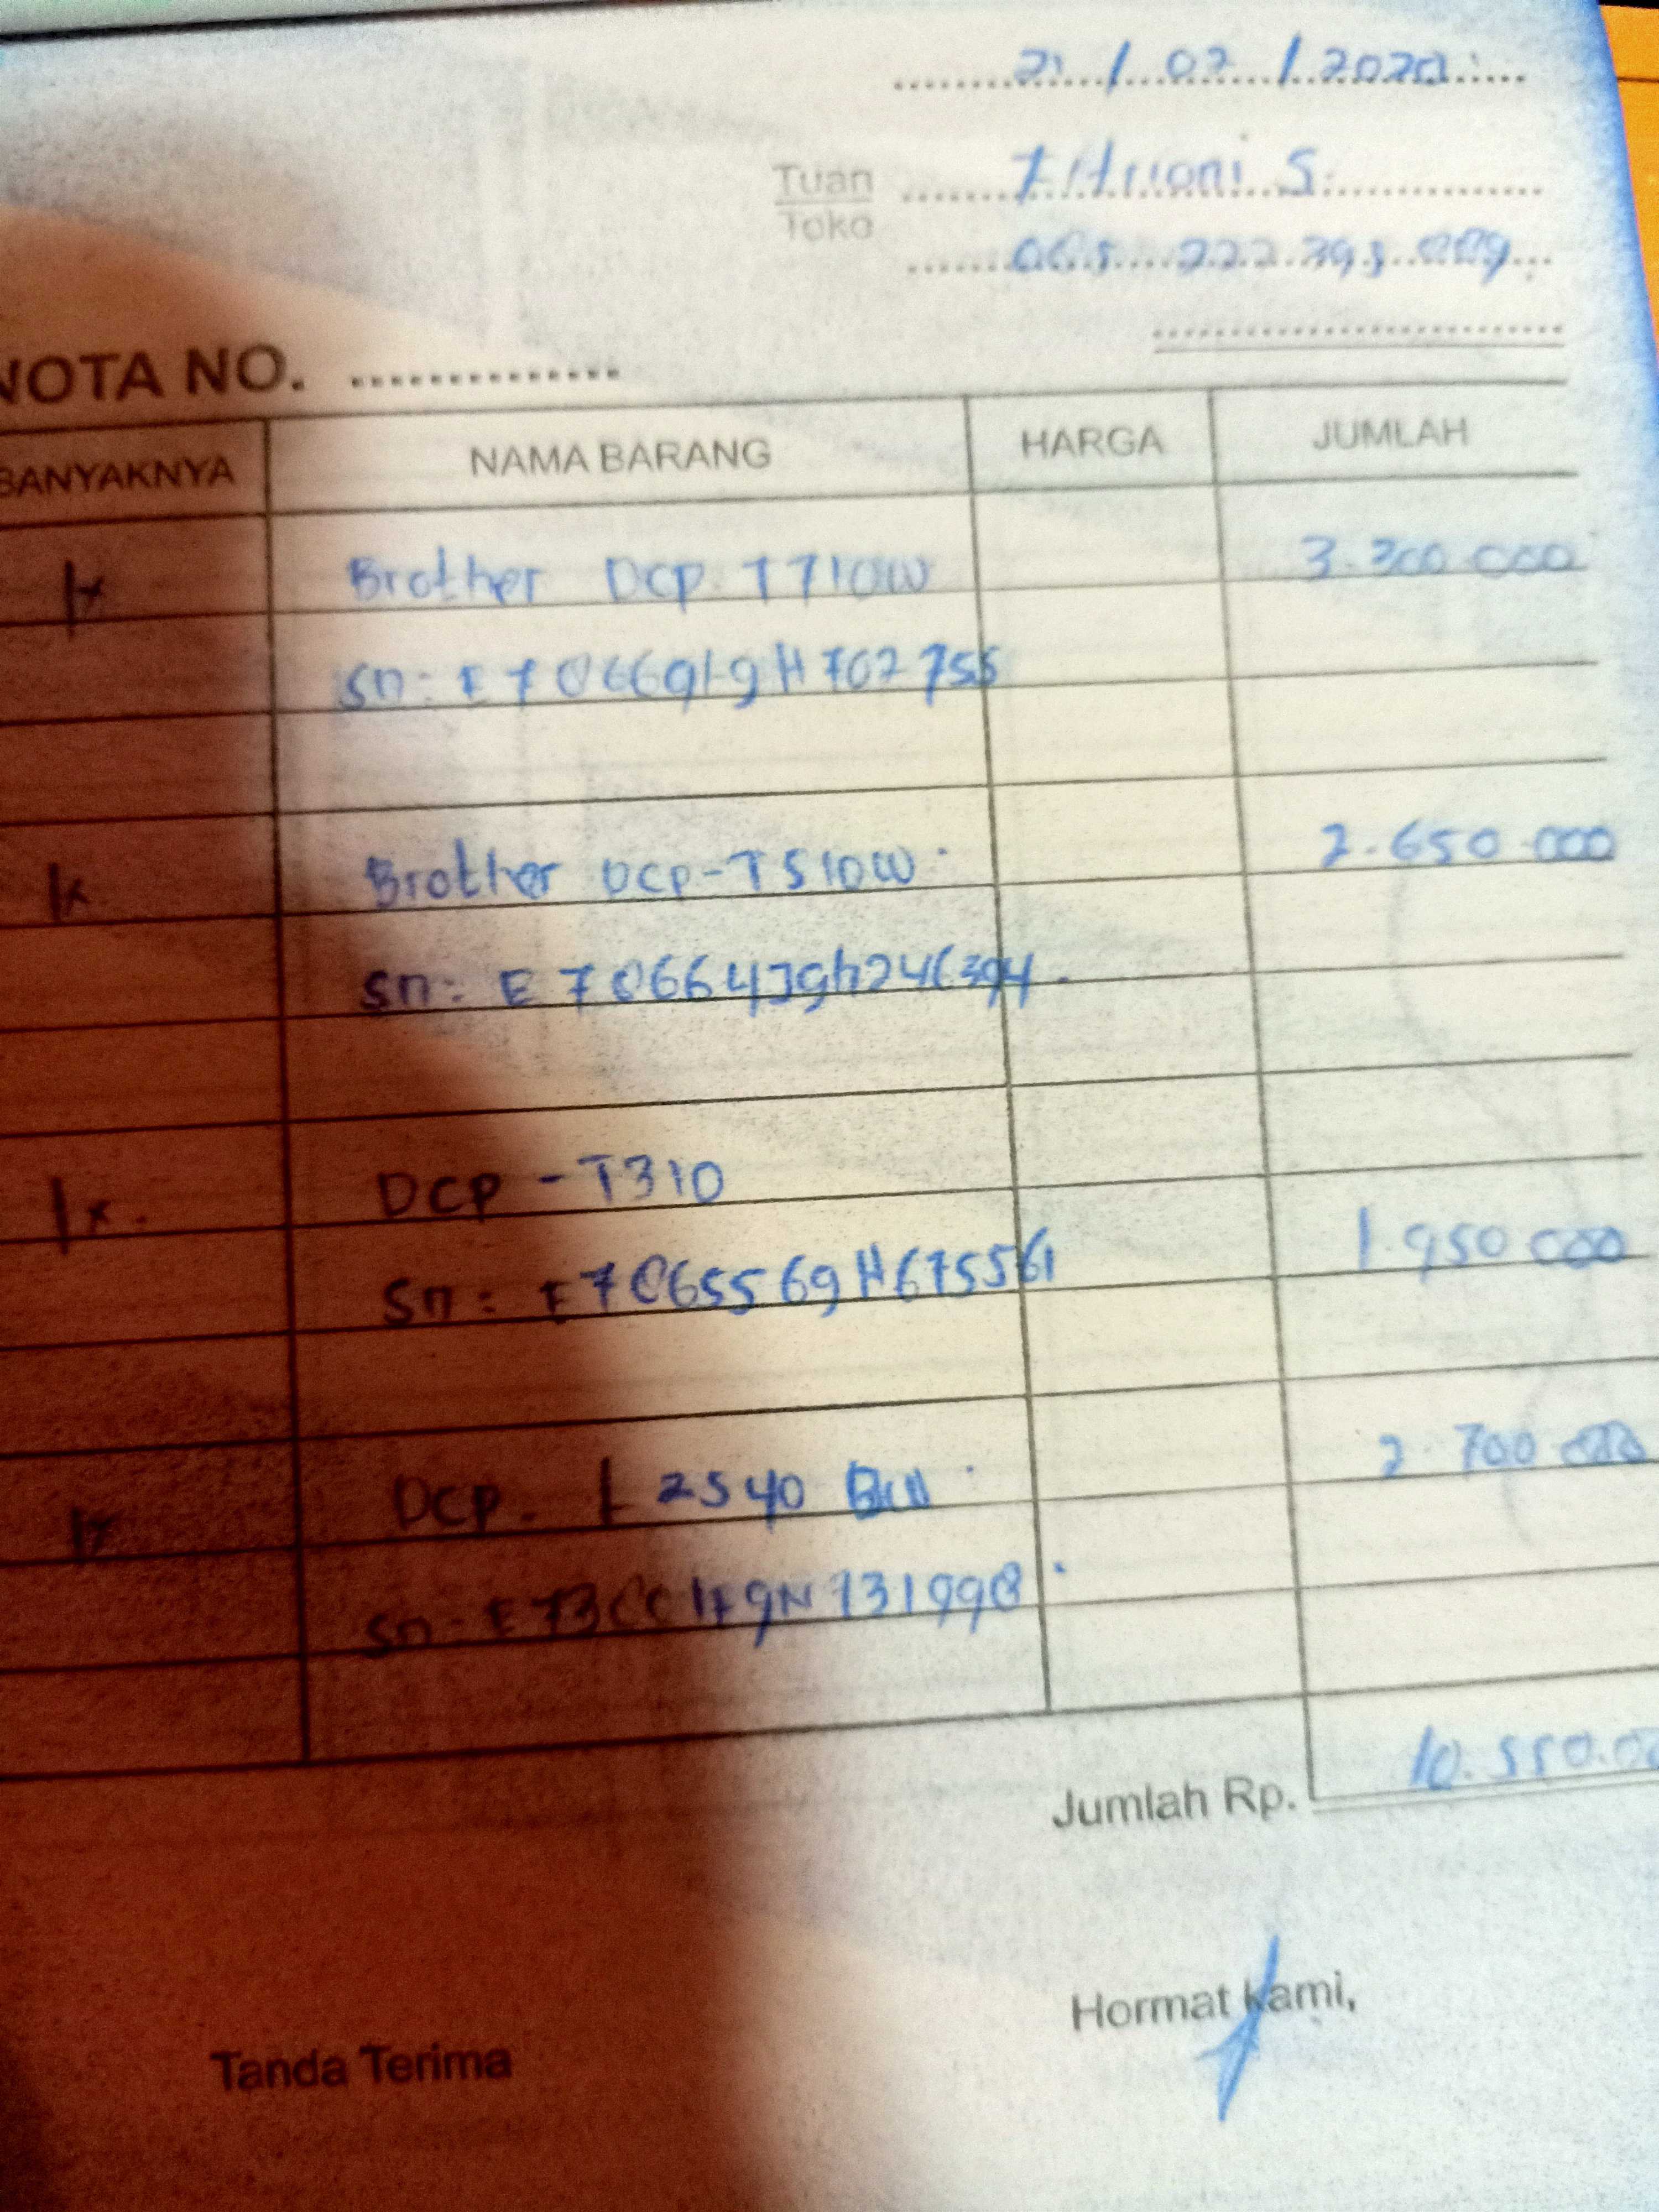 21 / 02 / 2020
Tuan Fitriani S.
Toko
NOTA NO.
BANYAKNYA NAMA BARANG HARGA JUMLAH
1x Brother DCP. T710W 3.300.000
Sn: E78669L9H702755
1x Brother DCP-T510W. 2.650.000
Sn: E78664J9H246394.
1x. DCP - T310
Sn: E78655G9H675561 1.950.000
1x DCP. L 2540 DW. 2.700.000
Sn:
Jumlah Rp. 10.550.00
Hormat Kami,
Tanda Terima